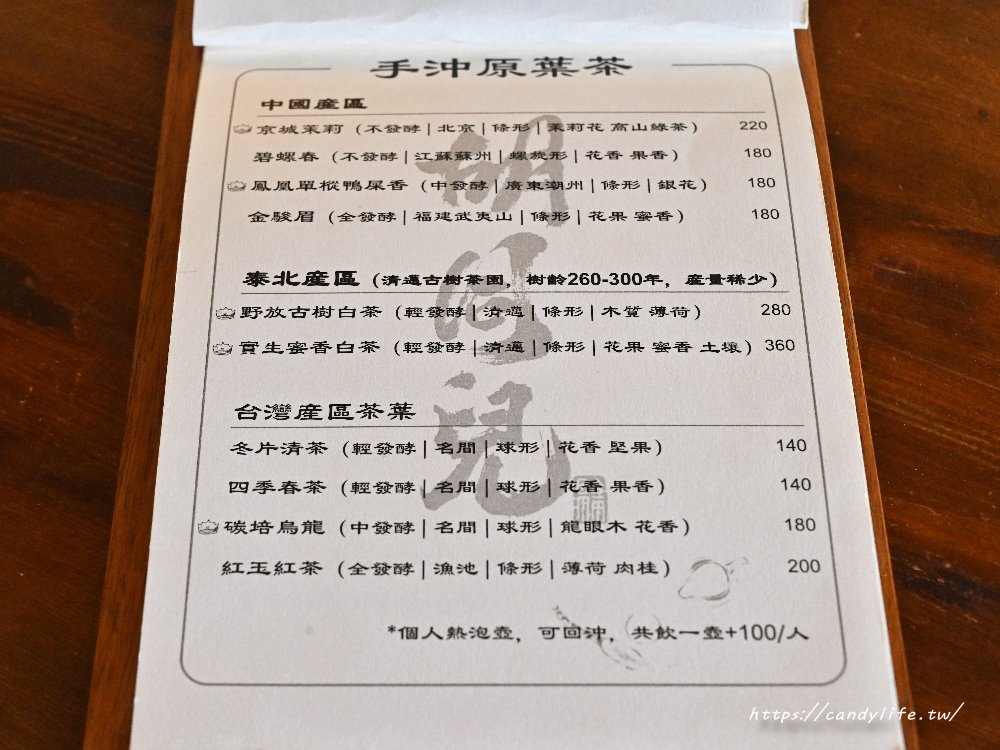 手沖原葉茶
中國產區
京城茉莉 (不發酵 | 北京 | 條形 | 茉莉花 高山綠茶) 220
碧螺春 (不發酵 | 江蘇蘇州 | 螺旋形 | 花香 果香) 180
鳳凰單樅鴨屎香 (中發酵 | 廣東潮州 | 條形 | 銀花) 180
金駿眉 (全發酵 | 福建武夷山 | 條形 | 花果 蜜香) 180
泰北產區 (清邁古樹茶園，樹齡260-300年，產量稀少)
野放古樹白茶 (輕發酵 | 清邁 | 條形 | 木質 薄荷) 280
實生蜜香白茶 (輕發酵 | 清邁 | 條形 | 花果 蜜香 土壤) 360
台灣產區茶葉
冬片清茶 (輕發酵 | 名間 | 球形 | 花香 堅果) 140
四季春茶 (輕發酵 | 名間 | 球形 | 花香 果香) 140
碳培烏龍 (中發酵 | 名間 | 球形 | 龍眼木 花香) 180
紅玉紅茶 (全發酵 | 漁池 | 條形 | 薄荷 肉桂) 200
*個人熱泡壺，可回沖，共飲一壺+100/人
https://candylife.tw/